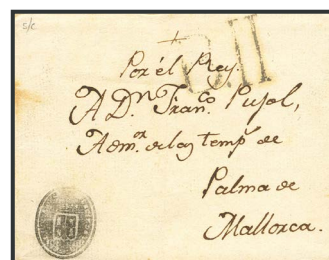 s/c
+
Por él Rey.
D.II
A Dⁿ Tranᶜᵒ Pujol,
Admᵒʳ de las tempˢ de
Palma de
Mallorca.